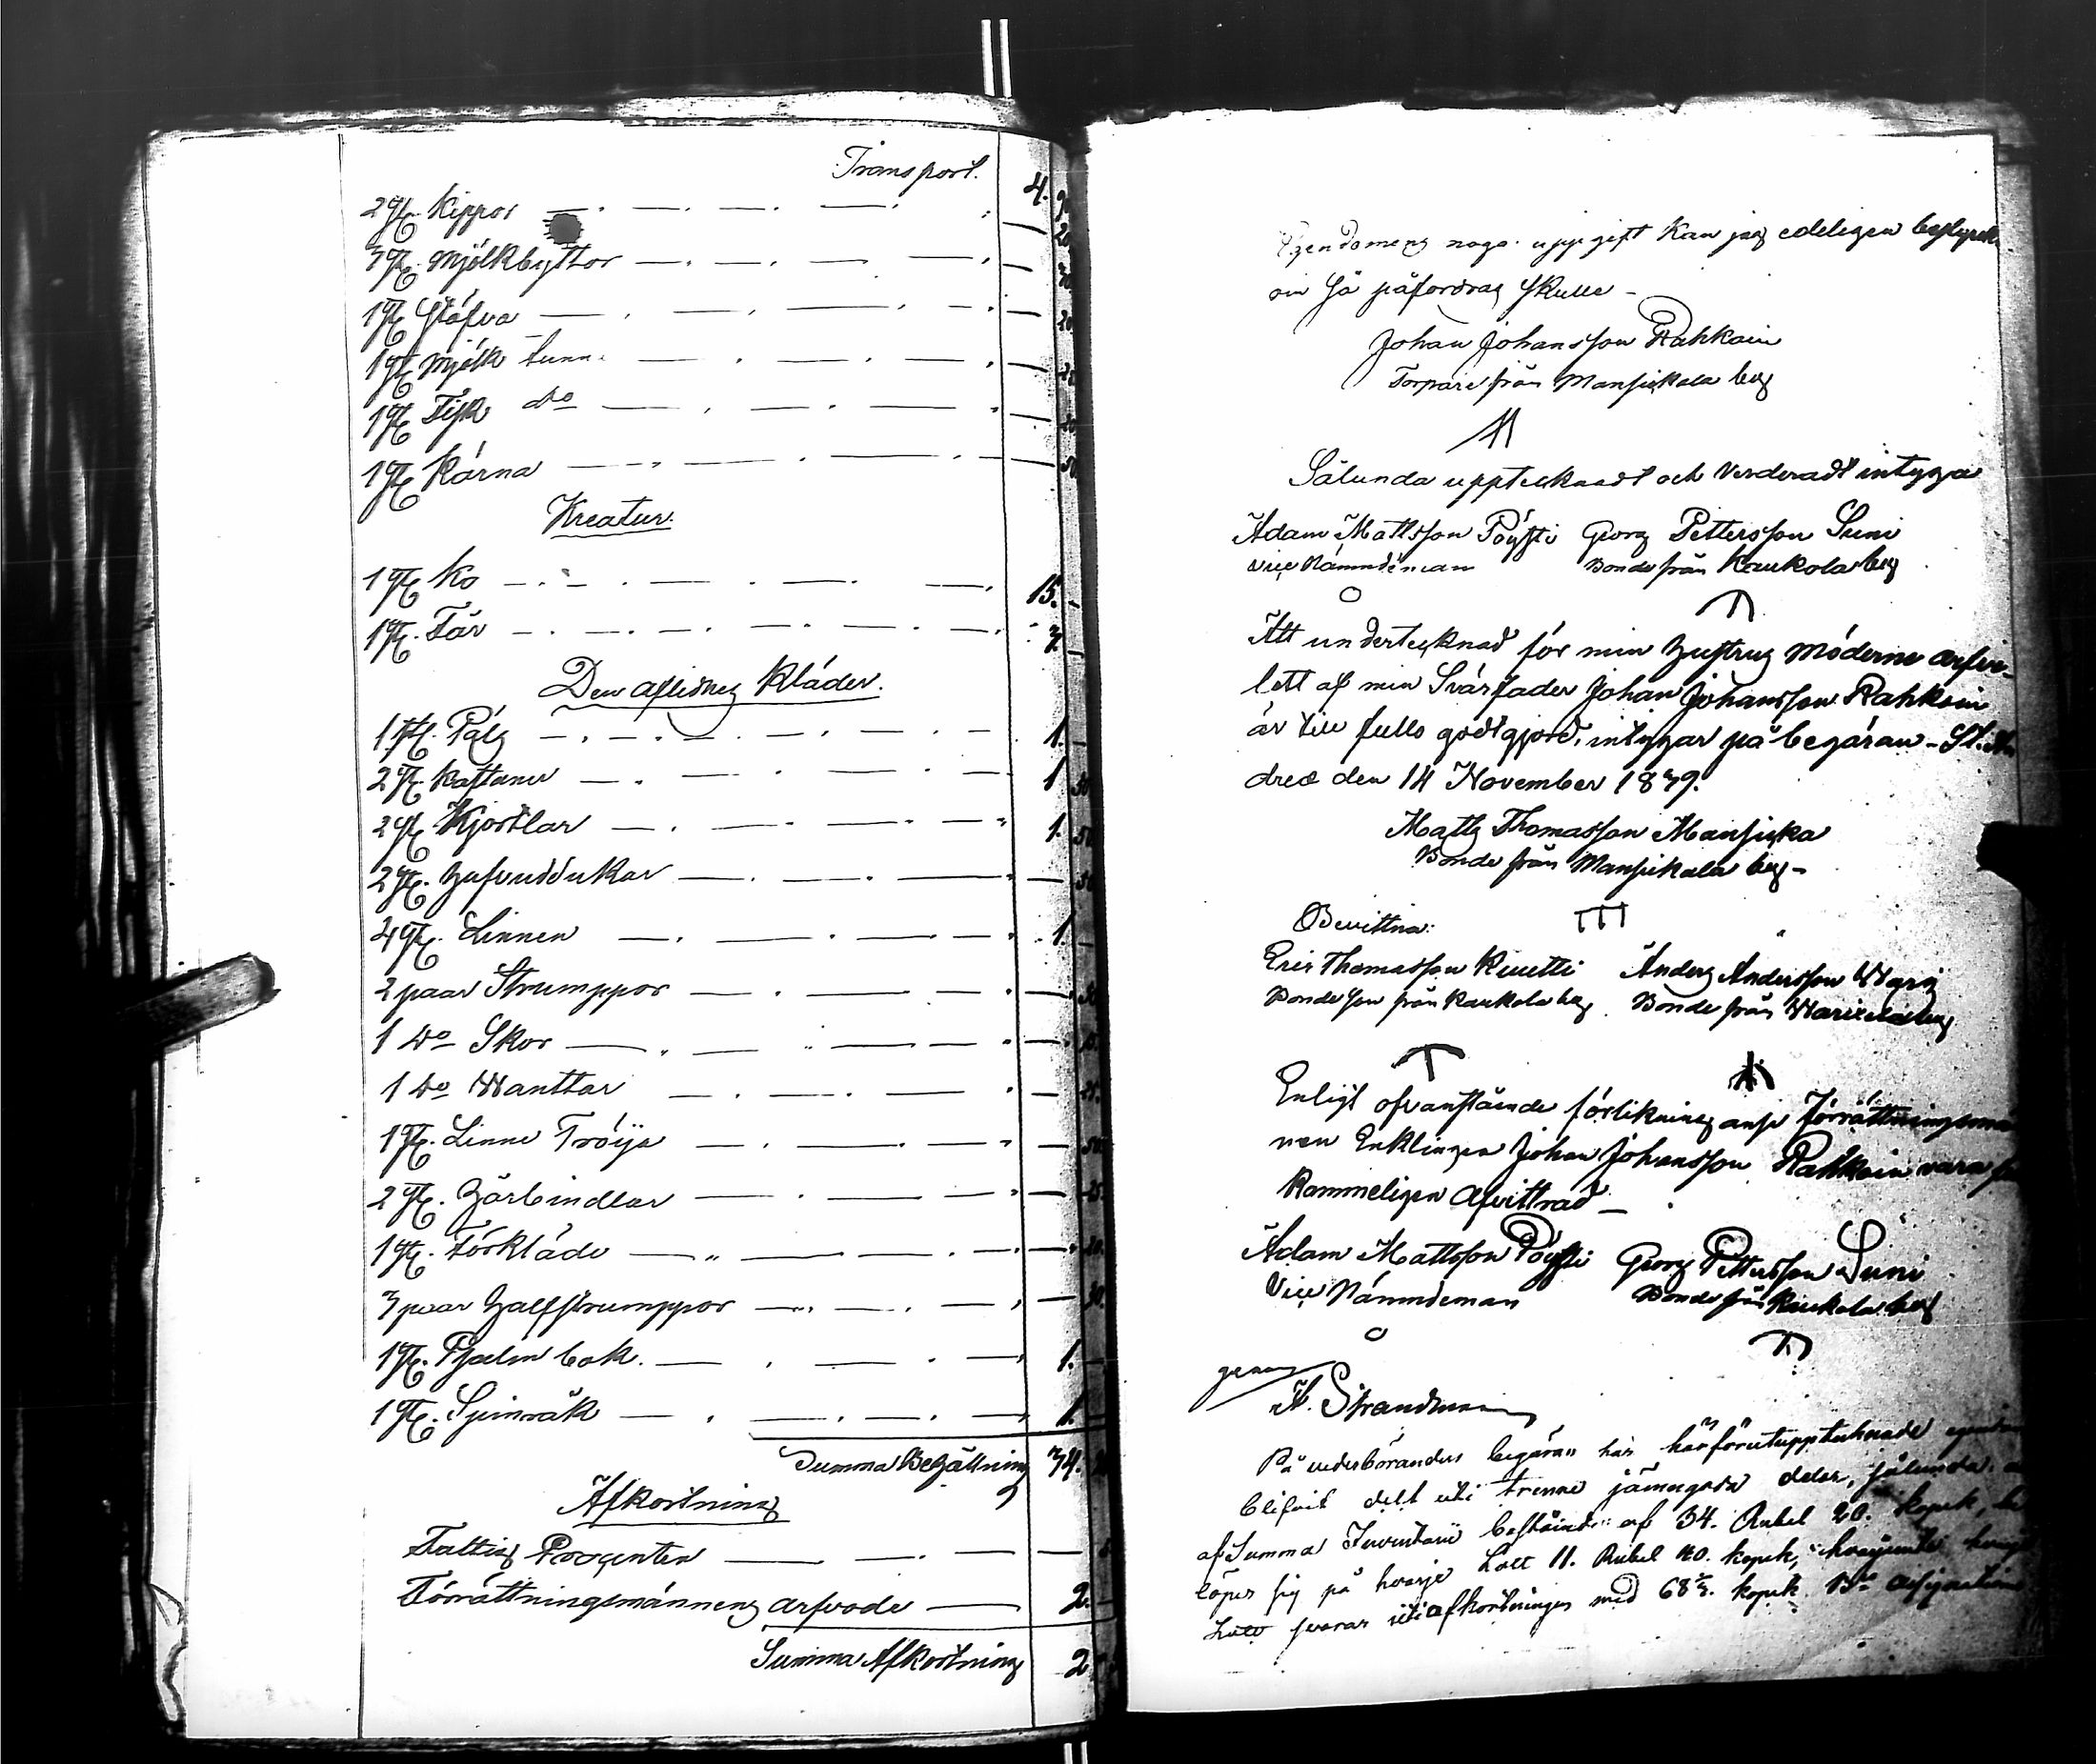 Transport. 4. 90
2 st. Kippor — 20
3 st. Mjölkbyttor — 30
1 st. Stäfva — 20
1 st. Mjölk tunn
1 st. Fisk do — 20
1 st. Kärna — 50
Kreatur.
1 st. Ko 15. —
1 st. Får 3. —
Den aflidnes Kläder.
1 st. Päls 1. —
2 st. Kaftaner 1 50
2 st. Kjortlar 1. 50
2 st. Hufvuddukar — 50
4 st. Linnen 1. —
2 paar Strumppor — 50
1 do Skor —
1 do Wanttar — 25.
1 st. Linne Tröija — 50
2 st. Hårbindlar — 25.
1 st. Förkläde — 20.
3 paar Halfstrumppor — 30.
1 st. Psalm bok. 1. —
1 st. Spinråk 1. —
Summa Behållning 34.
Afkortning
Fattig Procenten —
Förrättningsmännens arfvode 2. —
Summa Afkortning 2.
Egendomens noga uppgift kan jag edeligen bestyrka
om så påfordras skulle –
Johan Johansson Rahkoin
Torpare från Mansikala by
Sålunda upptecknadt och Verderadt intyga
Adam Mattsson Pöysti Georg Pettersson Suni
vice Nämndeman Bonde från Kaukola by
Att undertecknad för min hustrus Möderne arfve-
lott af min Svärfader Johan Johansson Rahkoin
är till fullo godtgjord, intygar på begäran – St. An
dreæ den 14 November 1839.
Matts Thomasson Mansikka
Bonde från Mansikala by –
Bevittna:
Eric Thomasson Kuutti Anders Andersson Waris
Bonde son från Kaukola by Bonde från
Enligt ofvanstående förlikning anse Förrättningsmän
nen Enklingen Johan Johansson Rahkoin vara
kommeligen Afvittrad –
Adam Mattsson Pöysti Georg Pettersson Suni
Vice Nämndeman Bonde från Kaukola by
genom
A. Strandman
På vederbörandes begäran har härförutupptecknade
blifvit delt uti trenne jämngoda delar, sålunda,
af Summa Inventarii bestående af 34. Rubel 20. kopek,
löper sig på hvarje Lott 11. Rubel 40. kopek,
Lott svarar uti afkortningen med 68⅓. kopek